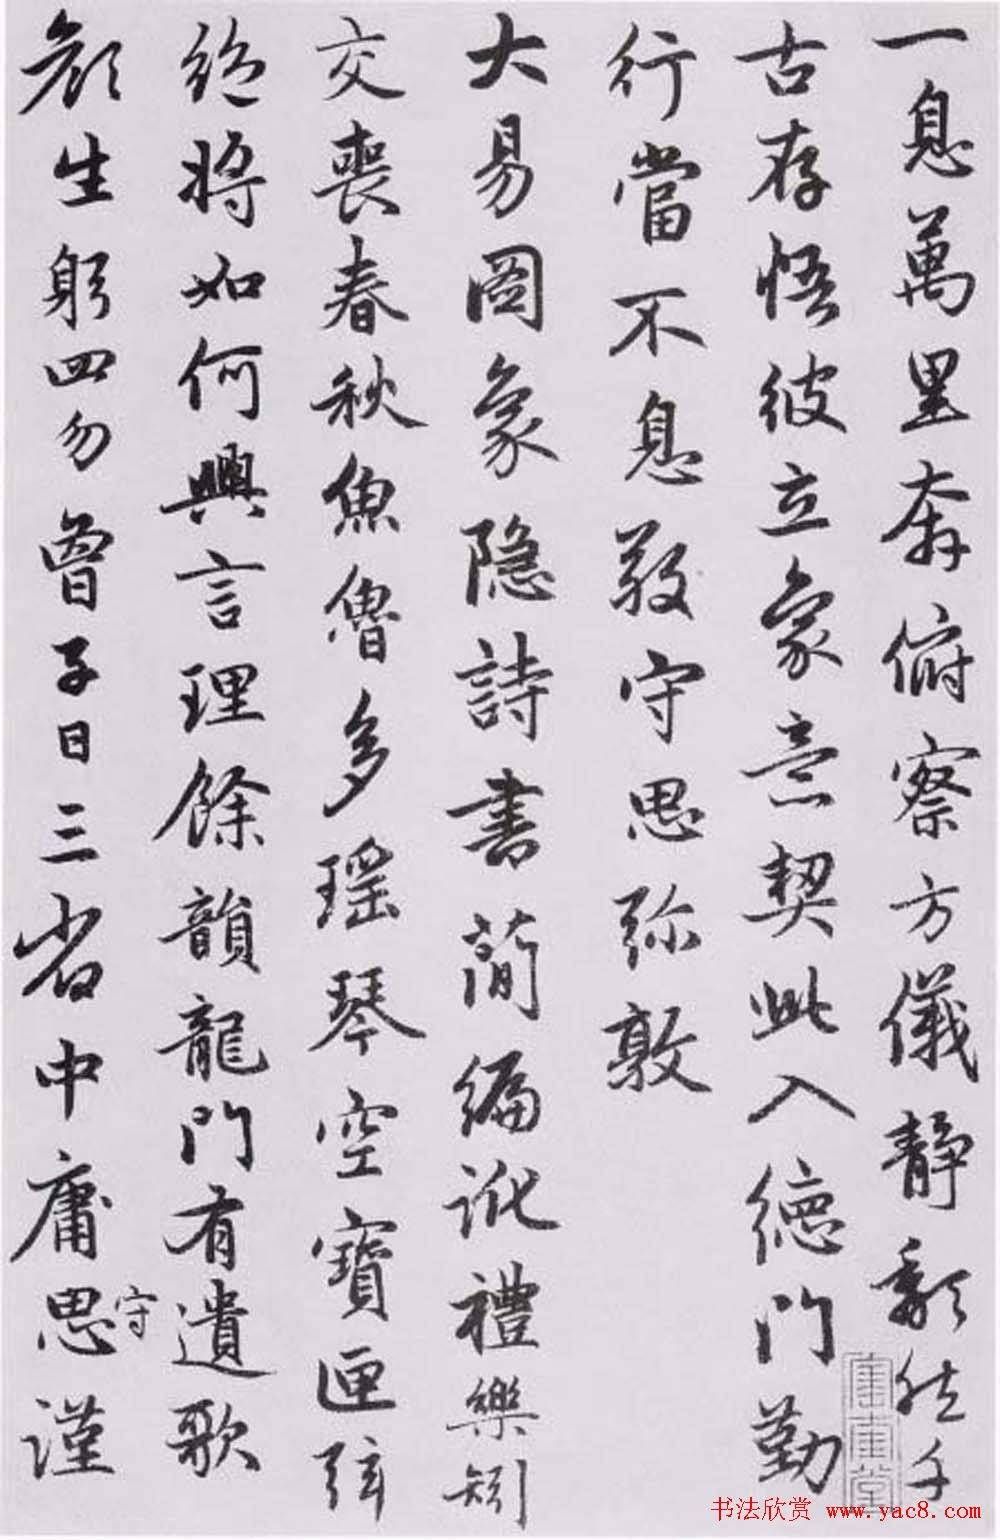 一息萬里奔俯察方儀静頹然千
古存悟彼立象意契此入德門勤
行當不息敬守思弥敦
大易圖象隐詩書簡編訛禮樂矧
交喪春秋魚魯多瑶琴空寶匣弦
絶將如何興言理餘韻龍門有遺歌
顔生躬四勿曾子日三省中庸思謹
守
书法欣赏 www.yac8.com